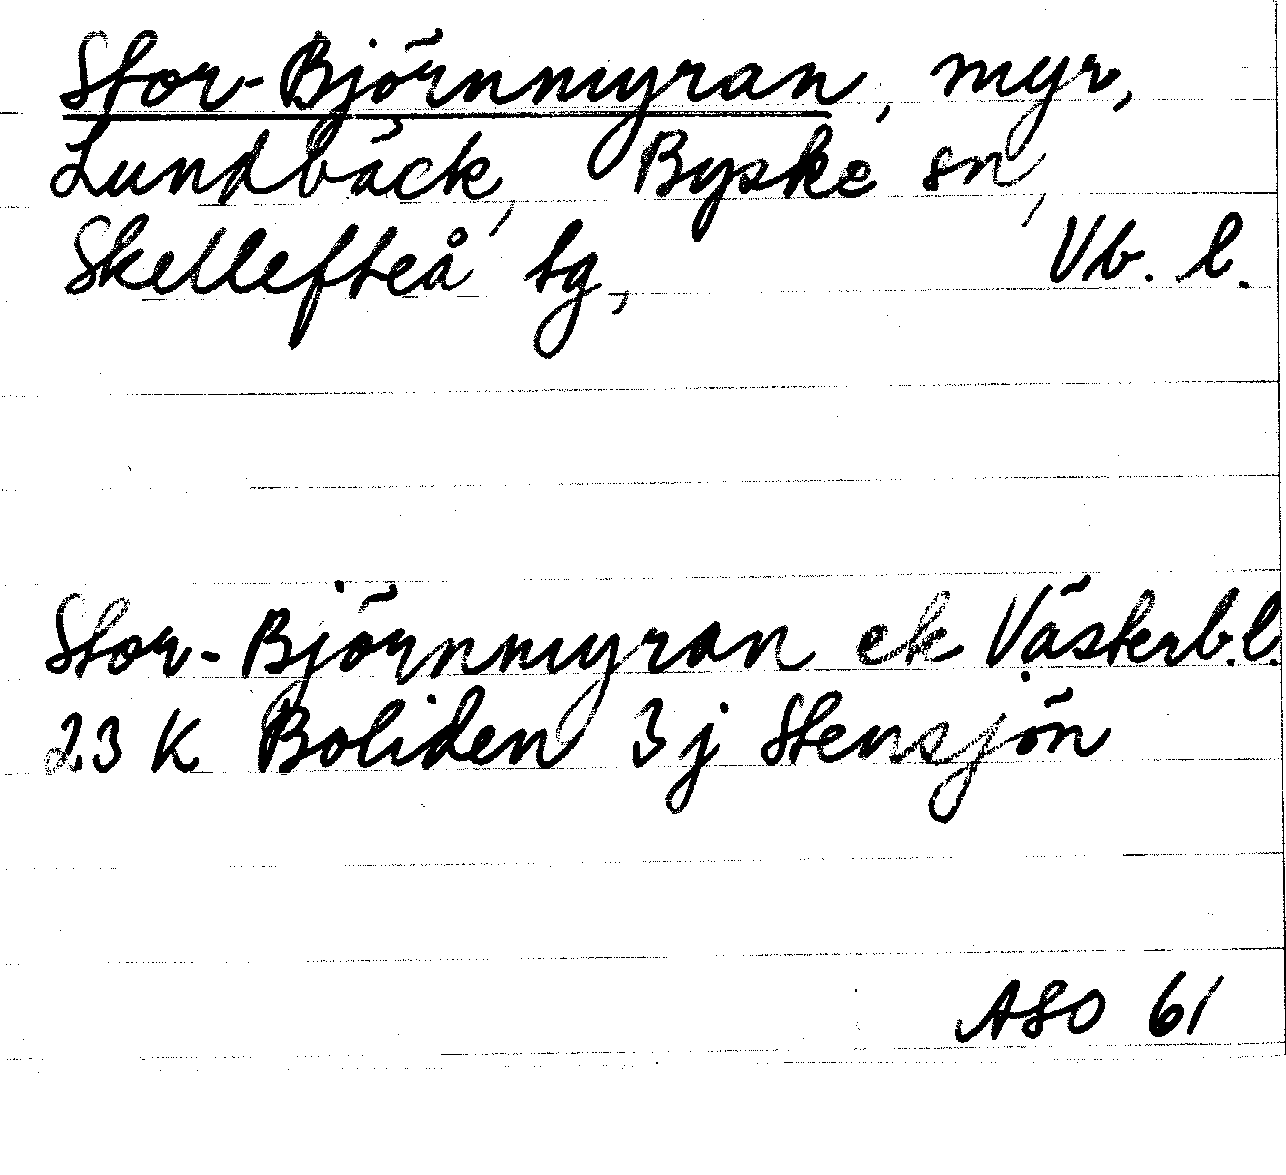 Stor-Björnmyran, myr,
Lundbäck, Byske sn,
Skellefteå tg, Vb. l.
Stor-Björnmyran ek Västerb.l.
23 K Boliden 3j Stensjön
ASO 61